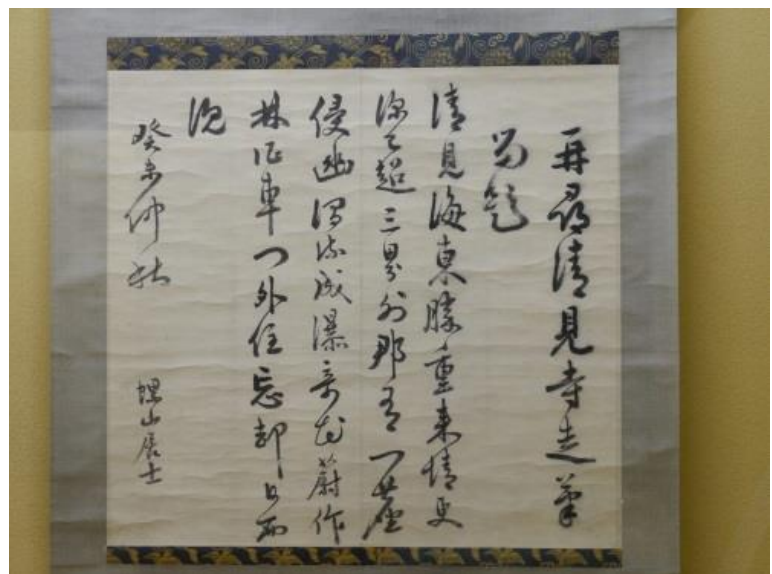 再尋清見寺走筆
留題
清見海東勝重來情更
深已超三界外那有一塵
侵幽澗流成瀑奇花蔚作
林征車門外住忘却日西
沉
癸未仲秋
螺山居士